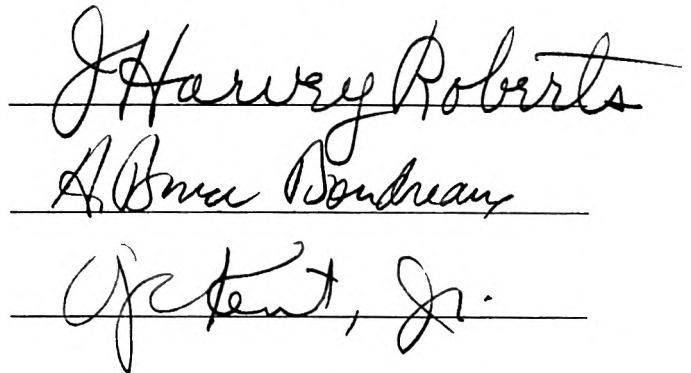 J Harvey Roberts
A. Bruce Boudreaux
Kent, Jr.